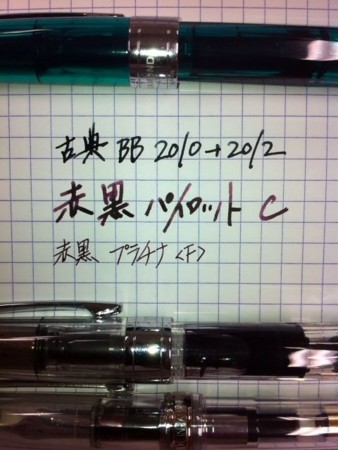 古典 BB 2010→2012
赤黒 パイロット C
赤黒 プラチナ <F>